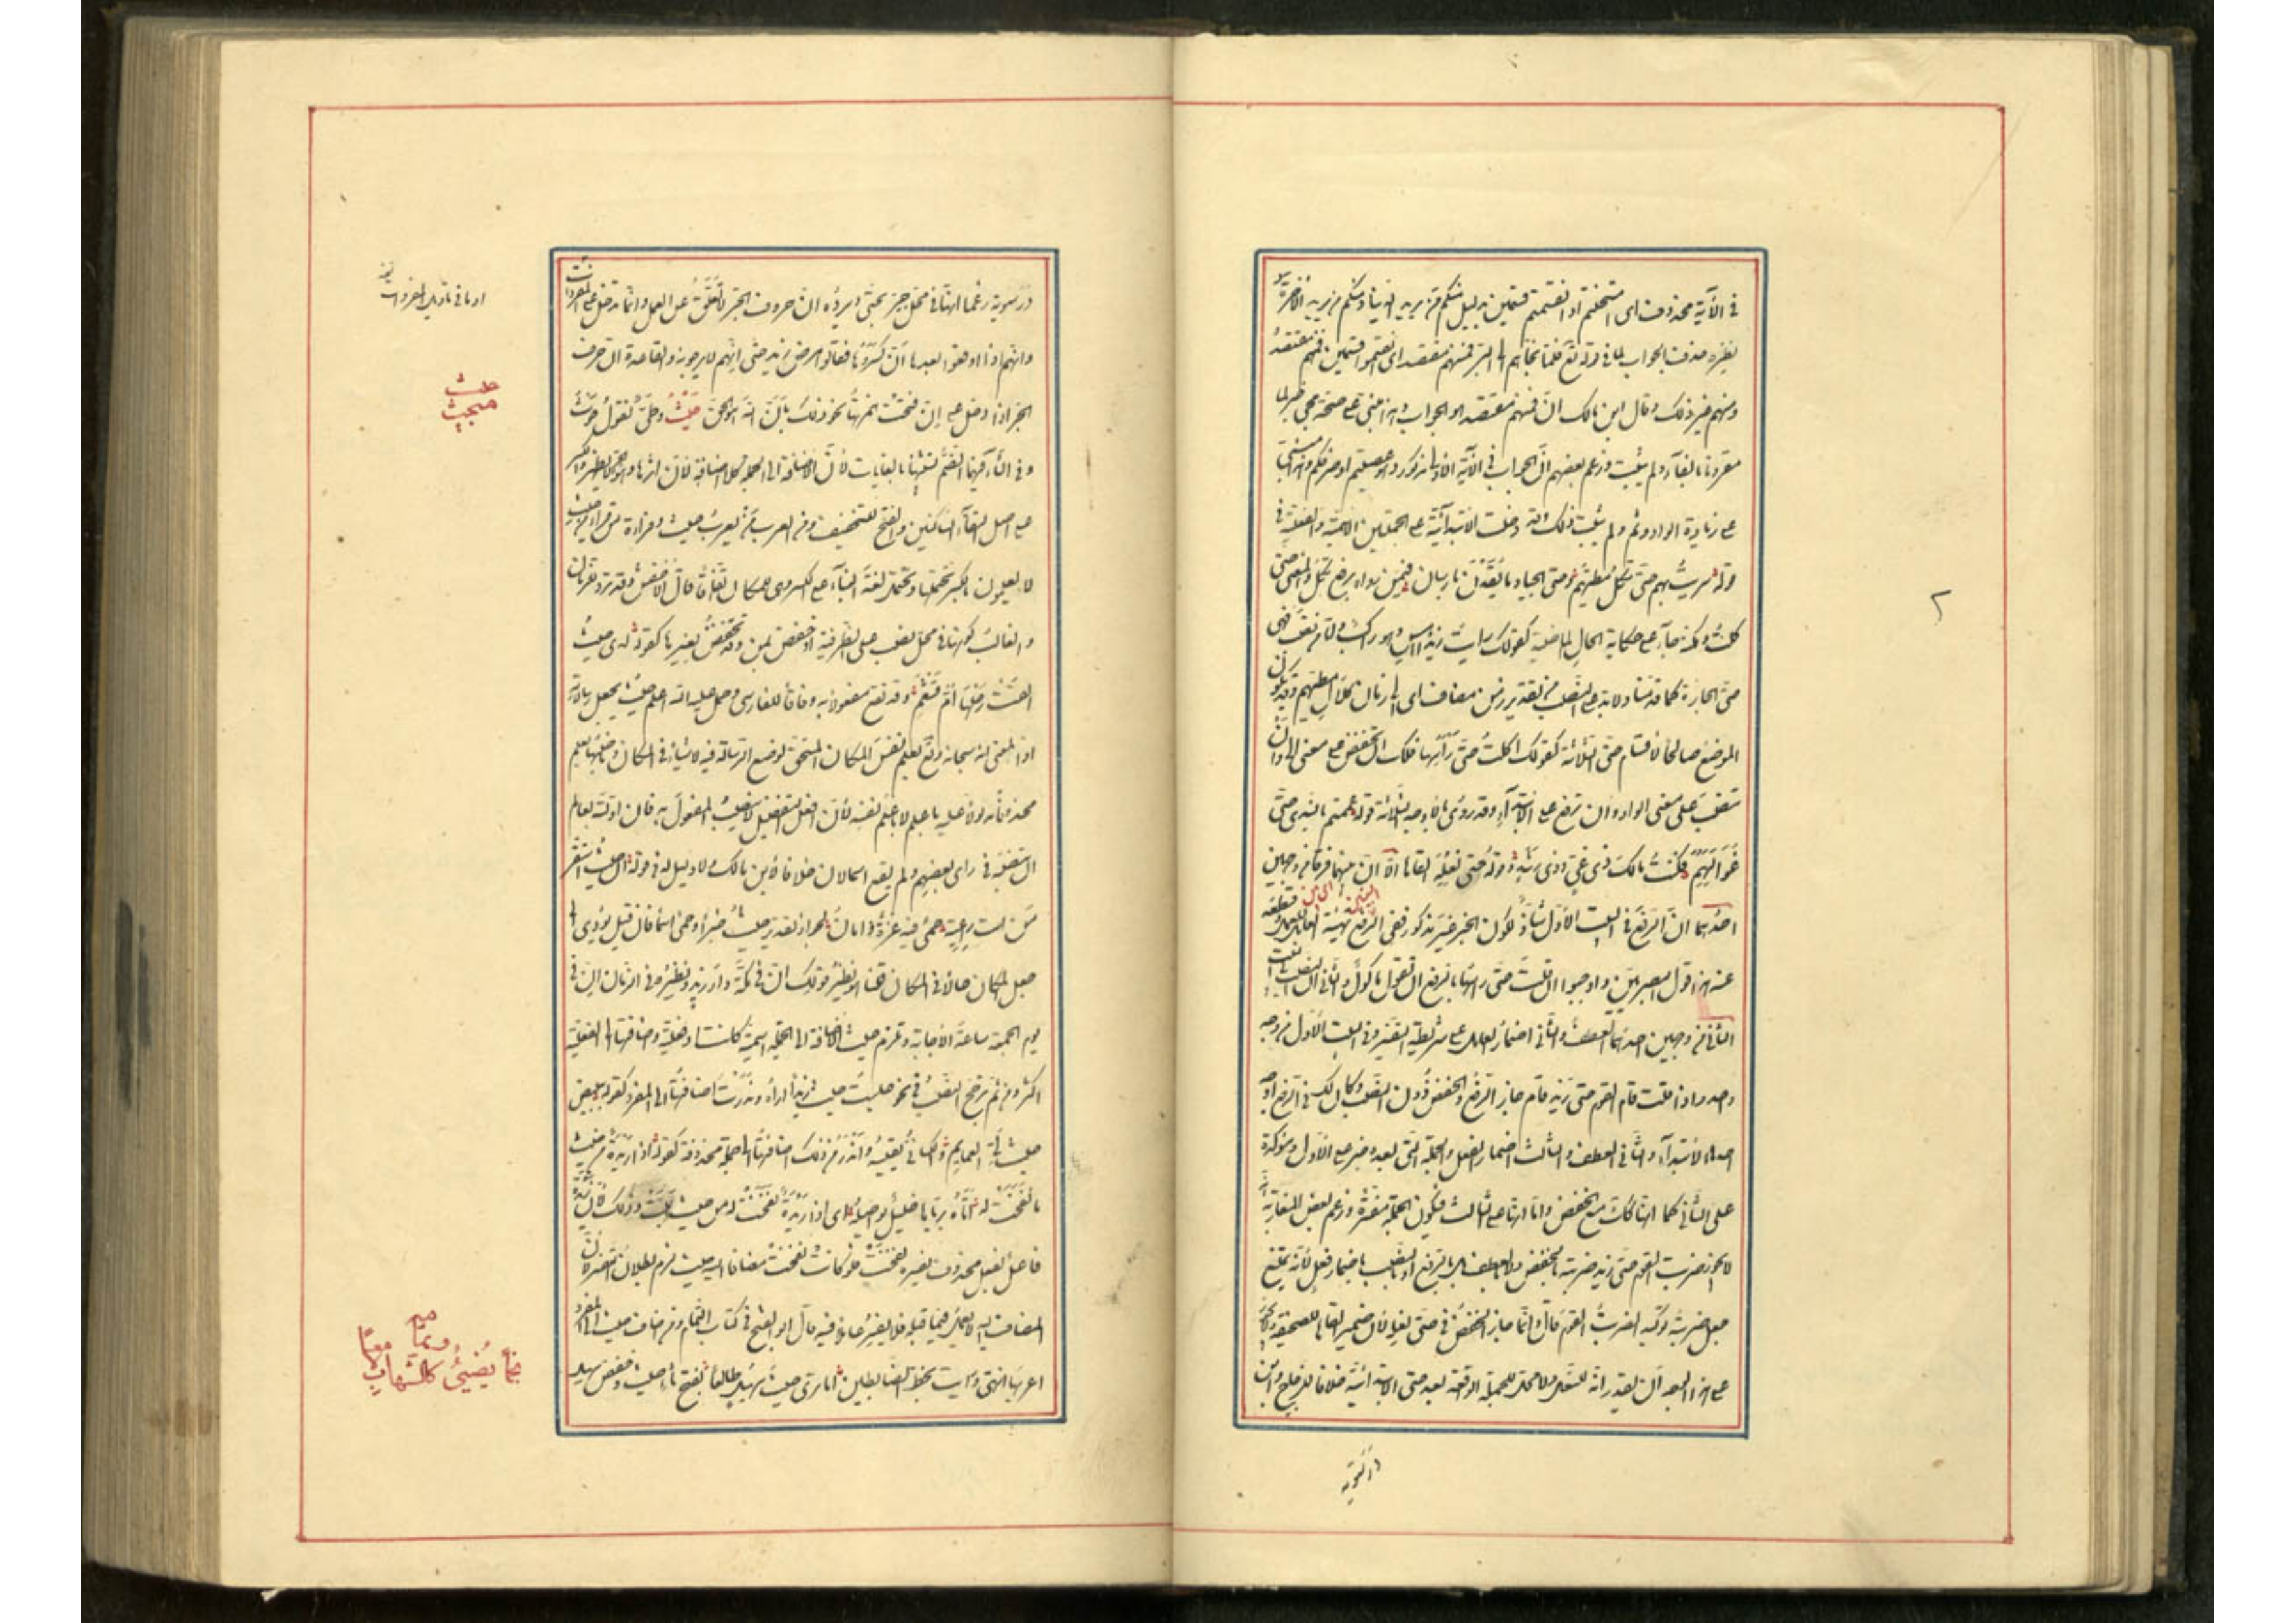 في الآية محذوف اى امتحنتم او انقسمتم قسمين بدليل منكم من يريد الدنيا ومنكم من يريد الآخرة
نظيره حذف الجواب لما في قوله تع فلما نجاهم الى البر فمنهم مقتصد اى انقسموا قسمين فمنهم مقتصد
ومنهم غير ذلك وقال ابن مالك ان فمنهم مقتصد هو الجواب وهذا مبنى على صحة مجى جواب لما
مقرونا بالفاء ولم يثبت وزعم بعضهم ان الجواب في الآية الاولى مذكور وهو عصيتم او صرفكم وهذا مبنى
على زيادة الواو وثم ولم يثبت ذلك وقد دخلت الابتدائية على الجملتين الاسمية والفعلية في
قوله سريت بهم حتى تكل مطيهم وحتى الجياد ما يقدن بارسان فيمن رواه برفع تكل والمعنى حتى
كلت ولكنه جاء على حكاية الحال الماضية كقولك رايت زيدا امس وهو راكب واما من نصب فهى
حتى الجارة كما قدمنا ولابد على النصب من تقدير زمن مضاف اى الى زمان كلال مطيهم وقد يكون
الموضع صالحا لاقسام حتى الثلاثة كقولك اكلت السمكة حتى رأسها فلك ان تخفض على معنى الى وان
تنصب على معنى الواو وان ترفع على الابتداء وقد روى بالاوجه الثلاثة قوله عممتهم بالندى حتى
غواتهم فكنت مالك ذى غى وذى رشد وقوله حتى نعله القاها الا ان بينهما فرقا من وجهين
احدهما ان الرفع في البيت الاول شاذ لكون الخبر غير مذكور ففى الرفع تهيئة العامل للعمل وقطعه
عنه هذا قول البصريين واوجبوا اذا قلت حتى رأسها بالرفع ان تقول ماكول والثانى ان النصب في البيت
الثانى من وجهين احدهما العطف والثانى اضمار العامل على شريطة التفسير وفى البيت الاول من وجه
واحد واذا قلت قام القوم حتى زيد قام جاز الرفع والخفض دون النصب وكان لك في الرفع اوجه
احدها الابتداء والثانى العطف والثالث اضمار الفعل والجملة التى بعده خبر على الاول ومؤكدة
على الثانى كما انها كذلك مع الخفض واما انها على الثالث فتكون الجملة مفسرة وزعم بعض المغاربة
لا يجوز ضربت القوم حتى زيد ضربته بالخفض ولا بالعطف بل بالرفع او بالنصب باضمار فعل لانه يمتنع
جعل ضربته توكيدا لضربت القوم قال وانما جاز الخفض في حتى نعله لان ضمير القاها للصحيفة ولا يجوز
على هذا الوجه ان يقدر انه للنعل ولا محل للجملة الواقعة بعد حتى الابتدائية خلافا للزجاج وابن
درستويه
درستويه زعما انها في محل جر بحتى ويرده ان حروف الجر لا تعلق عن العمل وانما تدخل على المفردات
وانهم اذا اوقعوا بعدها ان كسروها فقالوا مرض زيد حتى انهم لا يرجونه والقاعدة ان حرف
الجر اذا دخل على ان فتحت همزتها نحو ذلك بان الله هو الحق حيث وطى تقول حوث
وفى الثاء فيهما الضم تشبيها بالغايات لان الاضافة الى الجملة كلا اضافة لان اثرها وهو الجر لا يظهر والكسر
على اصل التقاء الساكنين والفتح للتخفيف ومن العرب من يعرب حيث وقراءة من قراء من حيث
لا يعلمون بالكسر تحتملها وتحتمل لغة البناء على الكسر وهى للمكان اتفاقا قال الاخفش وقد ترد للزمان
والغالب كونها في محل نصب على الظرفية او خفض بمن وقد تخفض بغيرها كقوله لدى حيث
القت رحلها ام قشعم وقد تقع مفعولا به وفاقا للفارسى وحمل عليه الله اعلم حيث يجعل رسالاته
اذ المعنى انه سبحانه وتع يعلم نفس المكان المستحق لوضع الرسالة فيه لا شيئا في المكان وناصبها يعلم
محذوفا مدلولا عليه باعلم لا باعلم نفسه لان افعل التفضيل لا ينصب المفعول به فان اولته بعالم
ان تنصبه في راى بعضهم ولم يقع اسما لان خلافا لابن مالك ولا دليل له في قوله ان حيث استقر
من انت راعيه حمى فيه عزة وامان لجواز تقدير حيث خبرا وحمى اسما فان قيل يؤدى الى
جعل المكان حالا في المكان قلنا هو نظير قولك ان في مكة دار زيد ونظيره في الزمان ان في
يوم الجمعة ساعة الاجابة وتلزم حيث الاضافة الى الجملة اسمية كانت او فعلية واضافتها الى الفعلية
اكثر ومن ثم ترجح النصب في نحو جلست حيث زيدا اراه وندرت اضافتها الى المفرد كقوله ببيض
حيث لى العمايم والكسائى يقيسه واندر من ذلك اضافتها الى جملة محذوفة كقوله اذا ريدة من حيث
ما نفحت له اتاه برياها خليل يواصله اى اذا ريدة نفحت له من حيث هبت وذلك لان ريدة
فاعل لفعل محذوف يفسره نفحت فلو كانت نفحت مضافا اليه حيث لزم بطلان التفسير لان
المضاف اليه لا يعمل فيما قبله فلا يفسر عاملا فيه قال ابو الفتح في كتاب التمام ومن اضاف حيث الى المفرد
اعربها انتهى ورايت بخط الضابطين اما ترى حيث سهيل طالعا بفتح ثاء حيث وخفض سهيل
حيث
مبحث
نجما يضيئ كالشهاب